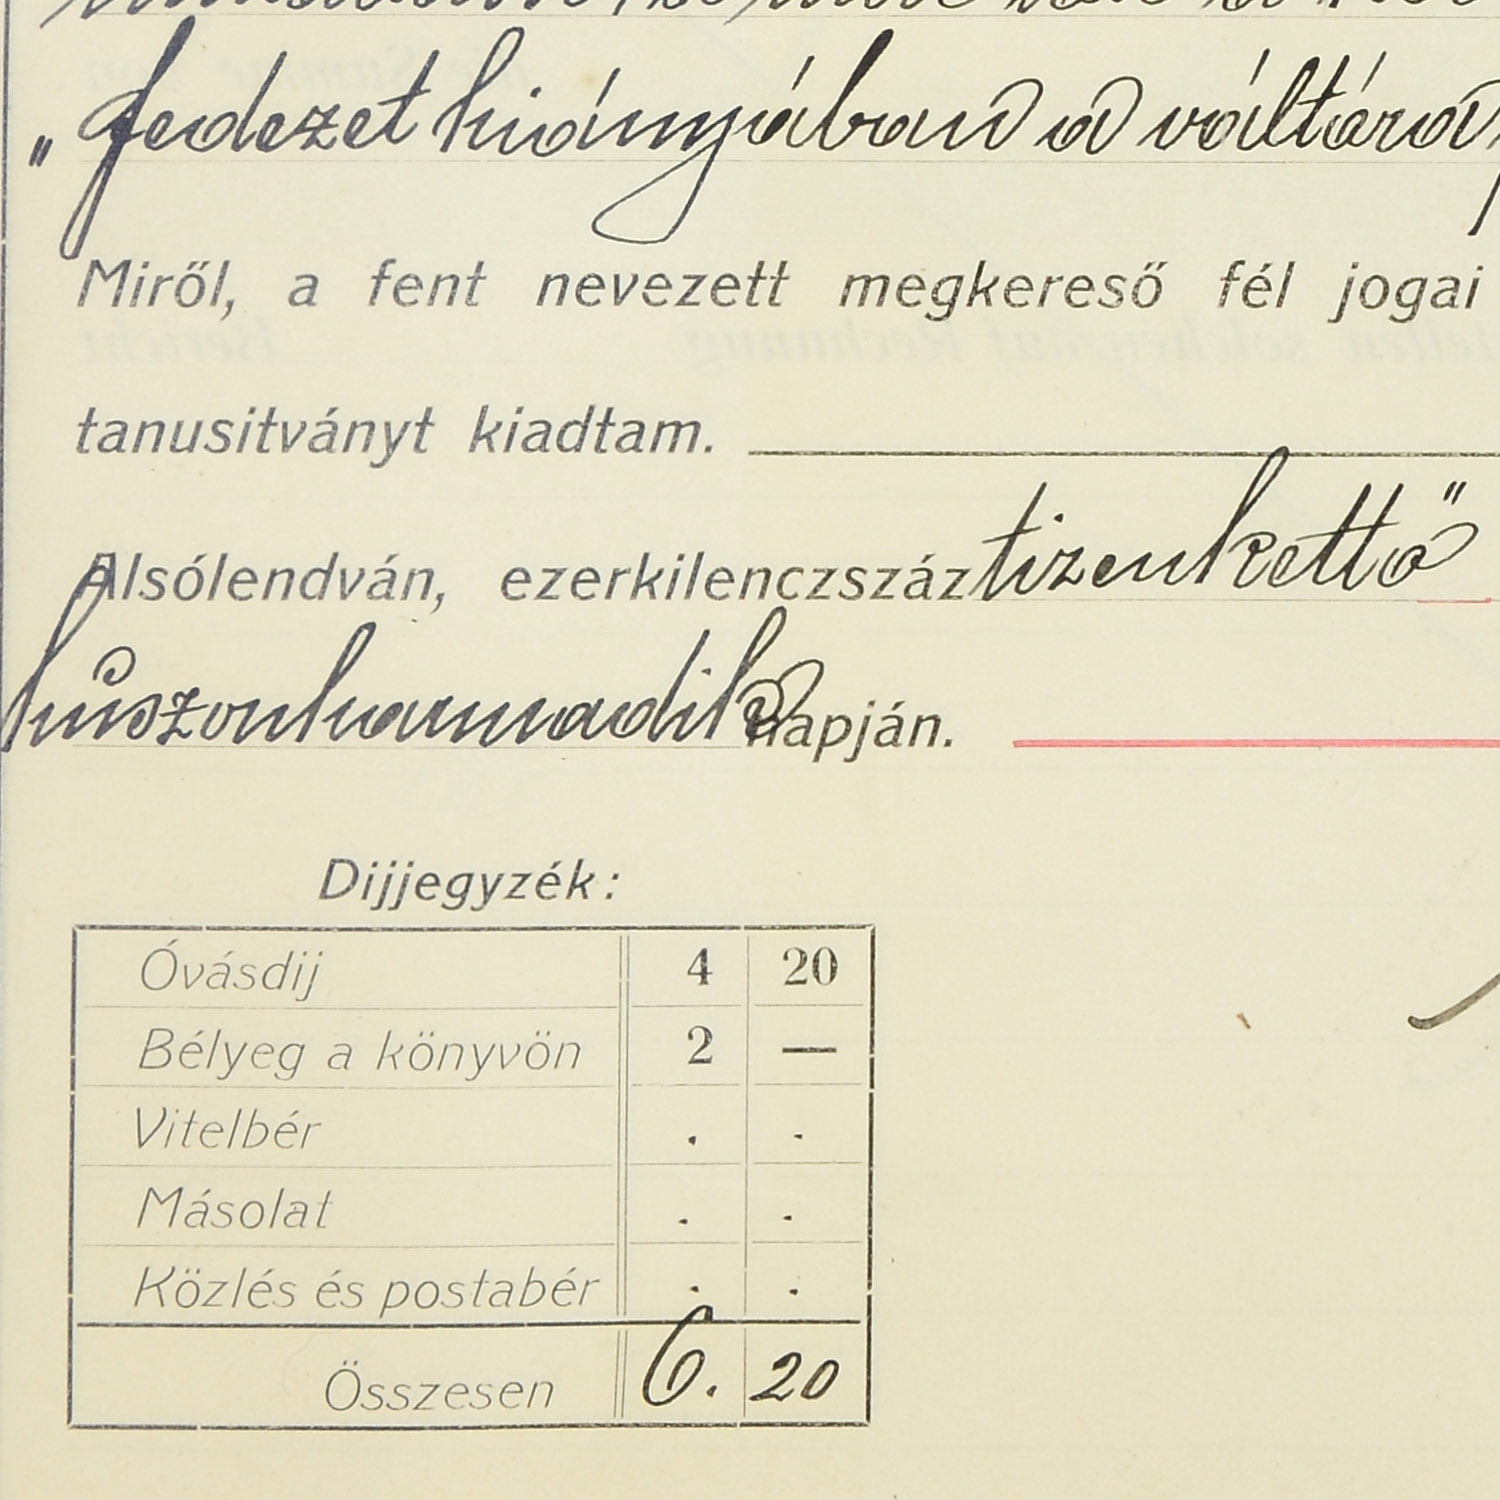 „fedezet hiányában a váltóra
Miről, a fent nevezett megkereső fél jogai
tanusitványt kiadtam.
Alsólendván, ezerkilenczszáz tizenkettő
huszonharmadik napján.
Dijjegyzék:
Óvásdij 4 20
Bélyeg a könyvön 2 —
Vitelbér . .
Másolat . .
Közlés és postabér . .
Összesen 6. 20